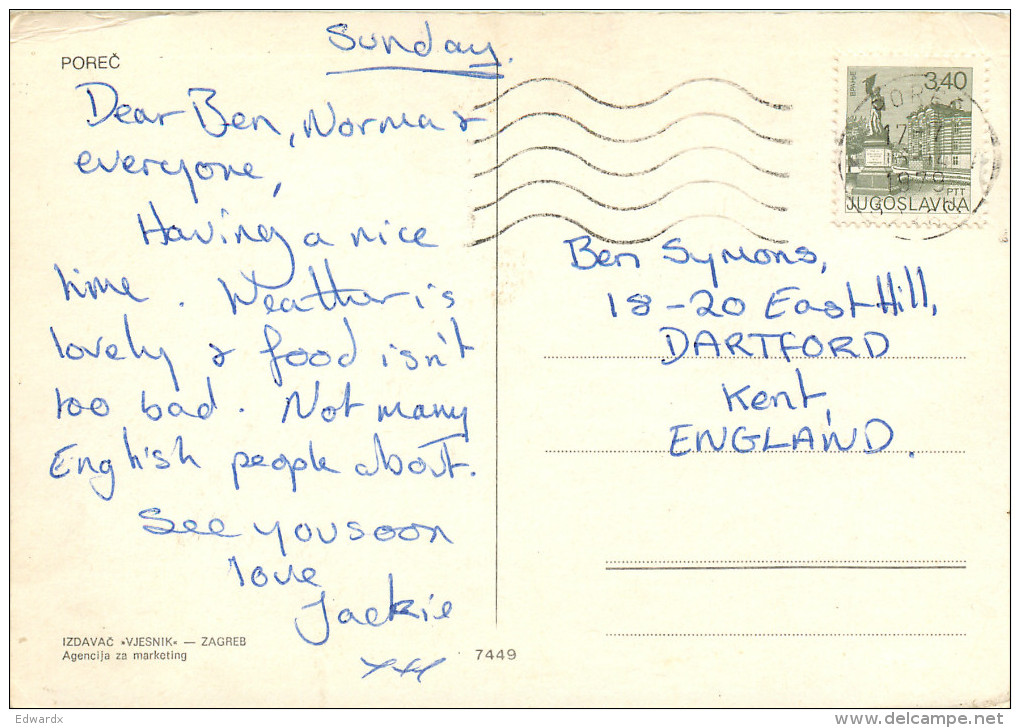 POREČ
Sunday.
Dear Ben, Norma &
everyone,
Having a nice
time. Weather is
lovely & food isn't
too bad. Not many
English people about.
See you soon
love
Jackie
xxx
IZDAVAČ »VJESNIK« — ZAGREB
Agencija za marketing
7449
3,40
ВРАЊЕ
1979
PTT
JUGOSLAVIJA
Ben Symons,
18-20 East Hill,
DARTFORD
Kent,
ENGLAND.
Edwardx
delcampe.net